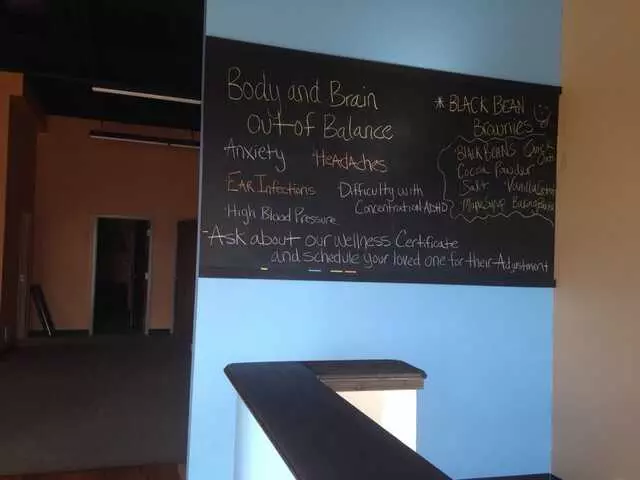 Body and Brain
out of Balance
Anxiety
Headaches
Ear Infections
Difficulty with
Concentration/ADHD?
High Blood Pressure
-Ask about our Wellness Certificate
and schedule your loved one for their Adjustment
* BLACK BEAN
Brownies
BLACK BEANS Quick Oats
Cocoa Powder
Salt Vanilla
Maple Syrup Baking